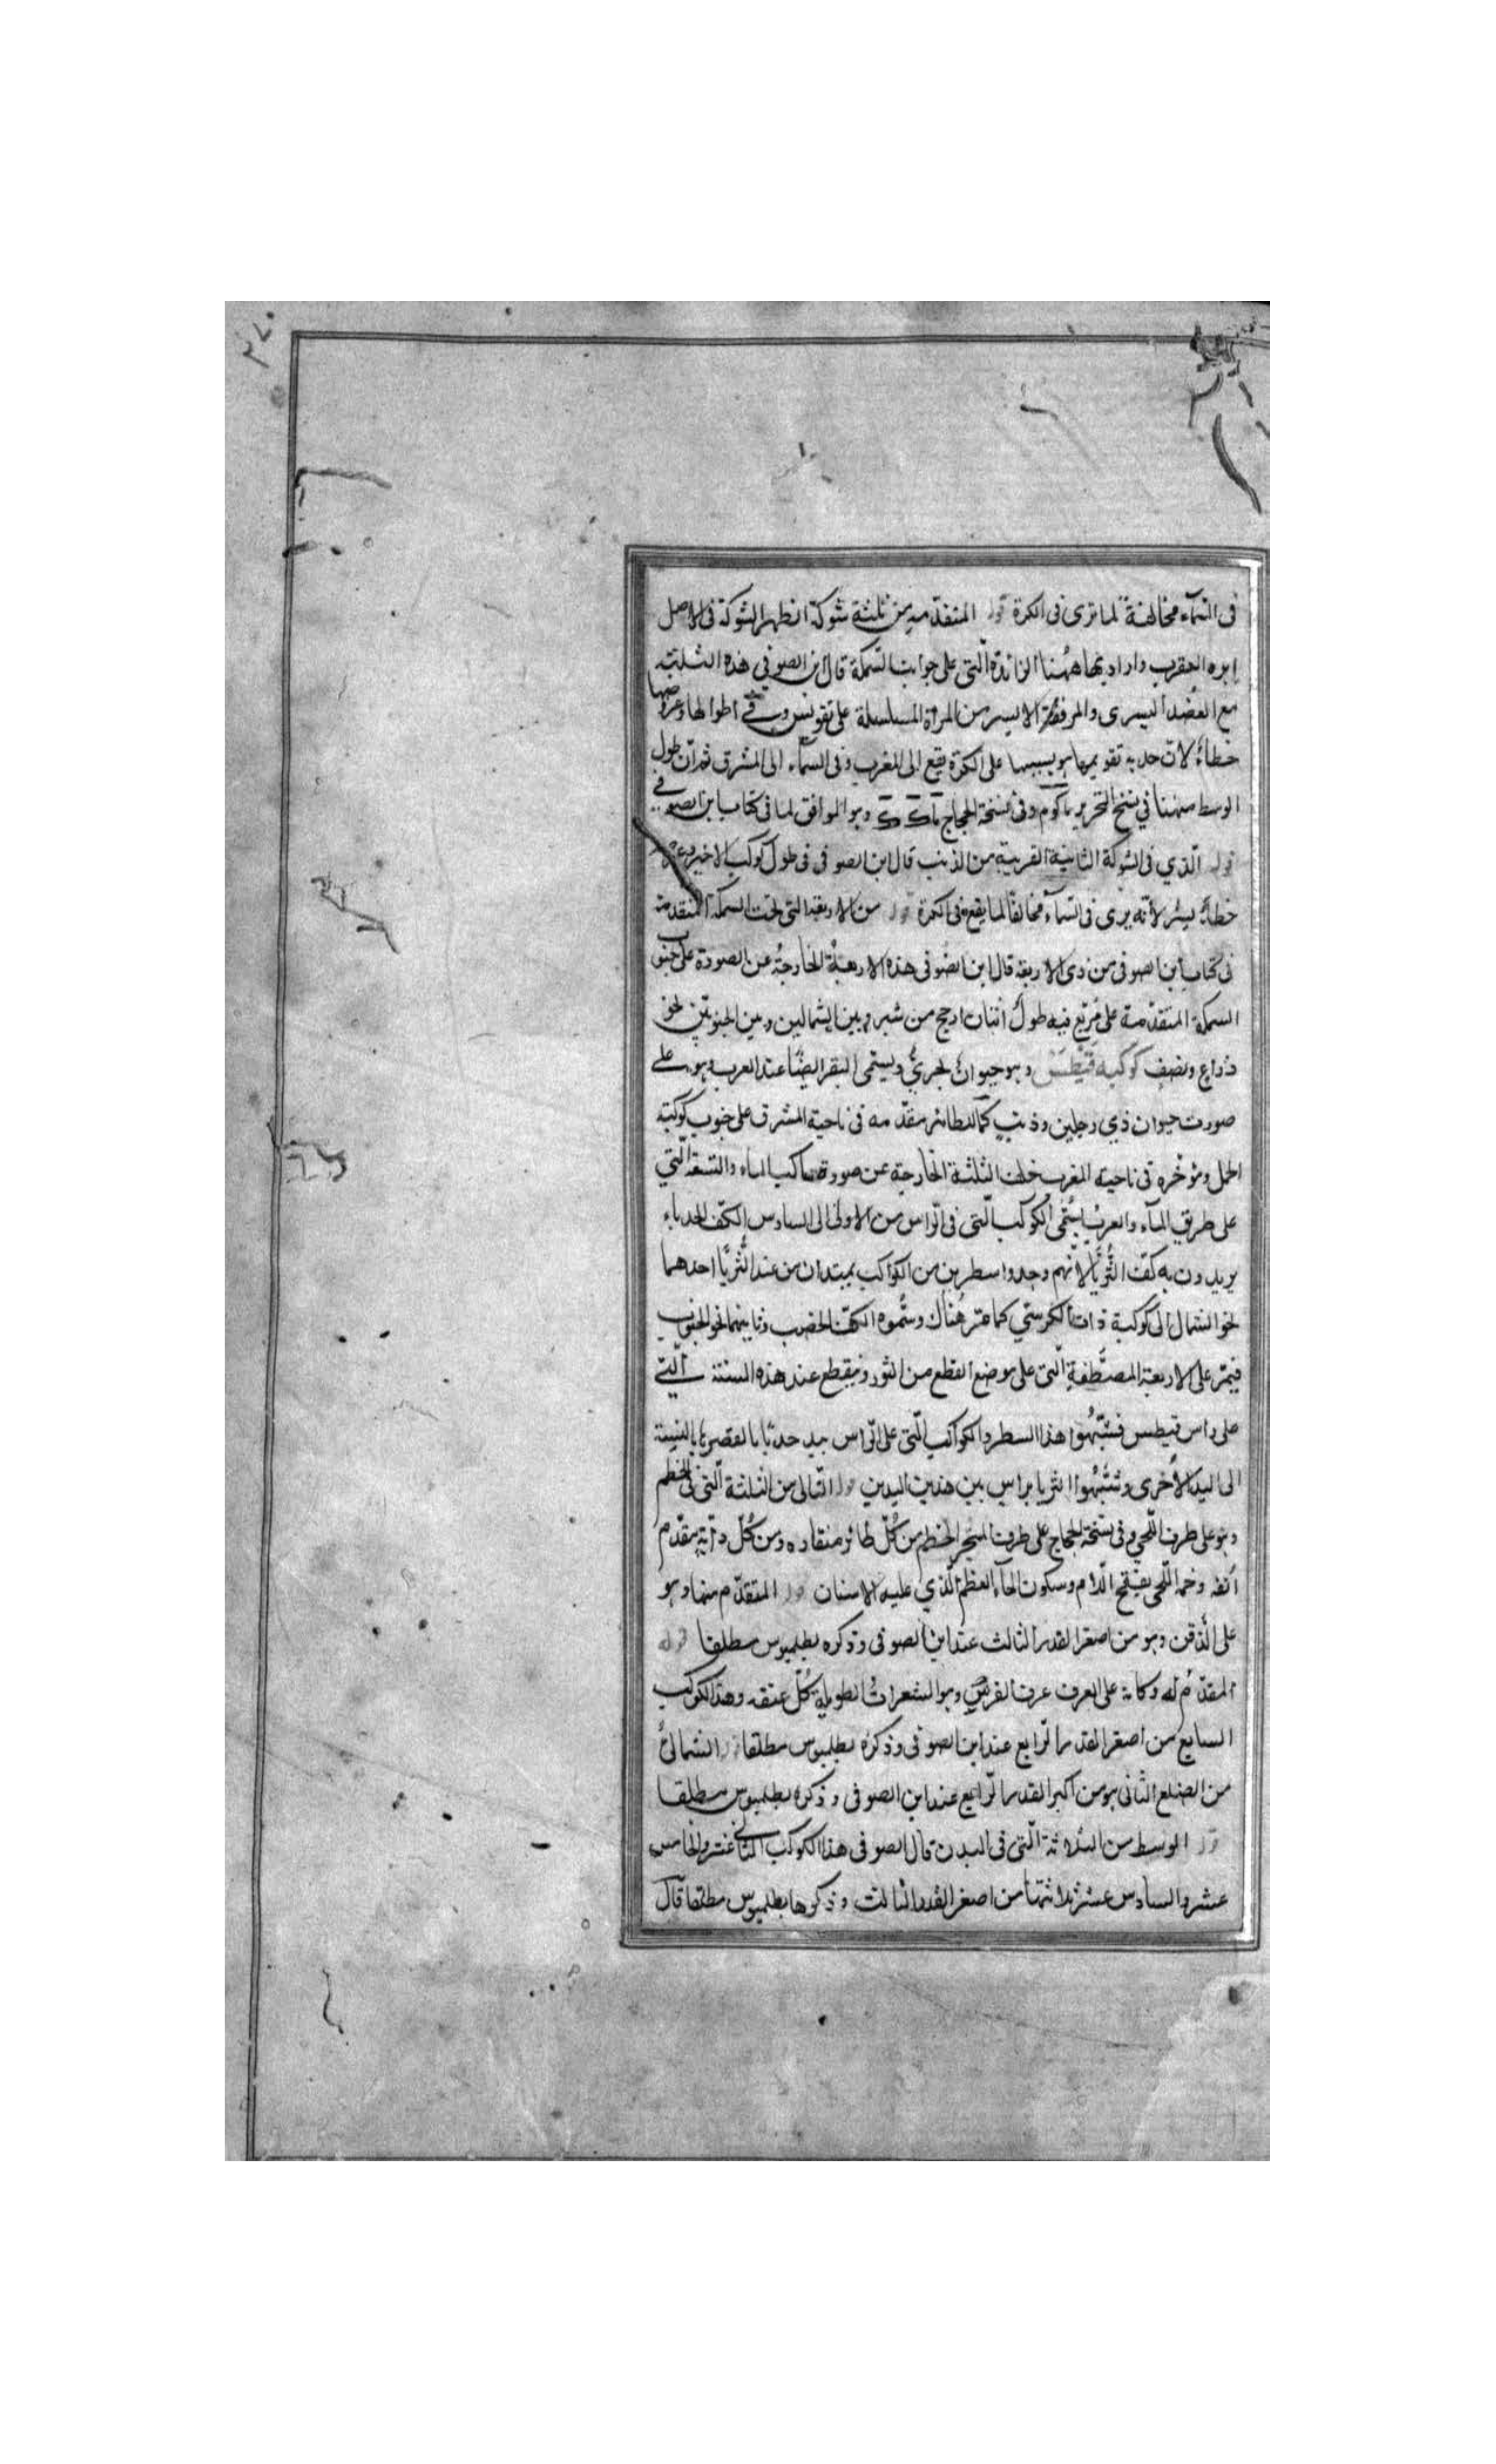 في السّمآء مخالفة لما ترى في الكرة قوله المتقدّمه من ثلثة شوكة انظهر الشوكة في الاصل
ابره العقرب واراد بها ههُنا الزائدة الّتي على جوانب السّمكة قال ابن الصوفي هذه الثلثة
مع العضد اليسرى والمرفق الايسر من المرأة المسلسلة على تقويس وفي اطوالها وعروضها
خطأ لانّ حدبه تقويسها على الكرة يقع الى المغرب وفي السمآء الى المشرق ثم انّ طول
الوسط ههنا في نسخ التحرير وفي نسخة الحجاج وهو الموافق لما في كتاب ابن الصوفي
قوله الّذي في الشوكة الثانية القريبة من الذنب قال ابن الصوفي في طول كوكب الاخير وعرضه
خطأ يسير لانّه يرى في السّمآء مخالفا لما يقع في الكرة قوله من الاربعة التي تحت السمكة المتقدمة
في كتاب ابن الصوفي من ذي الاربعة قال ابن الصوفي هذه الاربعة الخارجة عن الصورة على جنوب
السمكة المتقدّمة على مربّع فيه طول اثنان ارجح من شبر وبين الشمالين وبين الجنوبيّين نحو
ذراع ونصف كوكبه قيطس وهو حيوان بحريّ ويسمى البقر ايضًا عند العرب وهو على
صورت حيوان ذي رجلين وذنب كالطائر مقدّمه في ناحية المشرق على جنوب كوكبة
الحمل ومؤخّره في ناحية المغرب خلف الثلثة الخارجة عن صورة ساكب الماء والتسعة الّتي
على طريق المآء والعرب يُسمّى الكوكب الّتي في الرّاس من الاولى الى السادس الكفّ الجدماء
يريدون به كفّ الثُّريّا لانّهم وجدوا سطرين من الكواكب يمتدان من عند الثُّريّا احدهما
نحو الشمال الى كوكبة ذات الكرسيّ كما مرّ هُناك وسمُّوه الكفّ الخضيب وثانيهما نحو الجنوب
فيمرّ على الاربعة المصطفّة الّتي على موضع القطع من الثور وينقطع عند هذه الستة الّتي
على راس قيطس فشبّهُوا هذا السطر والكواكب الّتي على الرّاس بيد لقصرها بالنسبة
الى اليد الأخرى وشبّهُوا الثريا براس بين هذين اليدين قوله التّالي من الثلثة الّتي في الخطم
وهو على طرف اللّحي وفي نسخة الحجاج على طرف المنخر الخطم من كُلّ طائر منقاره ومن كُلّ دآبّة مقدّم
أنفه وفمه اللّحى بفتح اللّام وسكون الحآء العظم الّذي عليه الاسنان قوله المتقدّم منها وهو
على الذقن وهو من اصغر القدر الثالث عند ابن الصوفي وذكره بطلميوس مطلقا قوله
المقدّم له وكانه على العرف عرف الفرس وهو الشعرات الطويلة كلّ عنقه وهذا الكوكب
السابع من اصغر القدر الرّابع عند ابن الصوفي وذكره بطلميوس مطلقا قوله الشماليّ
من الضلع الثاني هو من اكبر القدر الرّابع عند ابن الصوفي وذكره بطلميوس مطلقا
قوله الوسط من الثلاثة الّتي في البدن قال الصوفي هذا الكوكب الثاني عشر والخامس
عشر والسادس عشر ثلاثتها من اصغر القدر الثالث وذكرها بطلميوس مطلقا قال